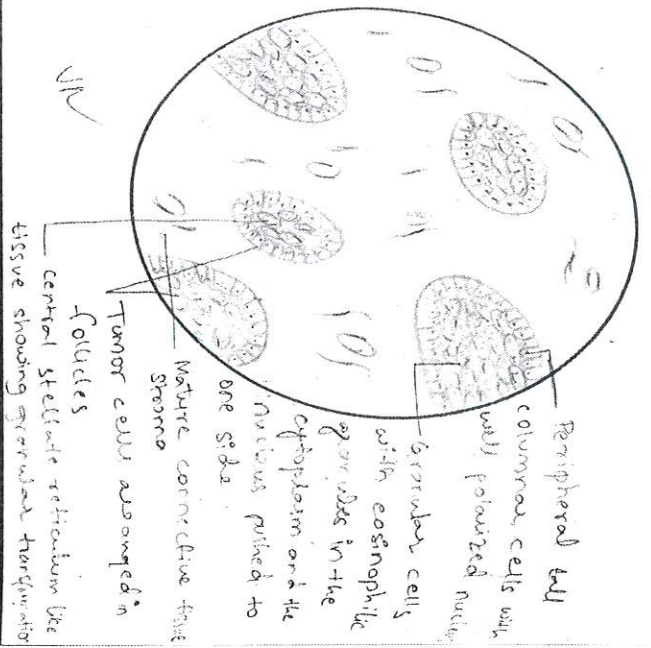 Peripheral tall
columnar cells with
well polarized nuclei
Granular cells
with eosinophilic
granules in the
cytoplasm and the
nucleus pushed to
one side
Mature connective tissue
stroma
Tumor cells arranged in
follicles
central stellate reticulum like
tissue showing granular transformation